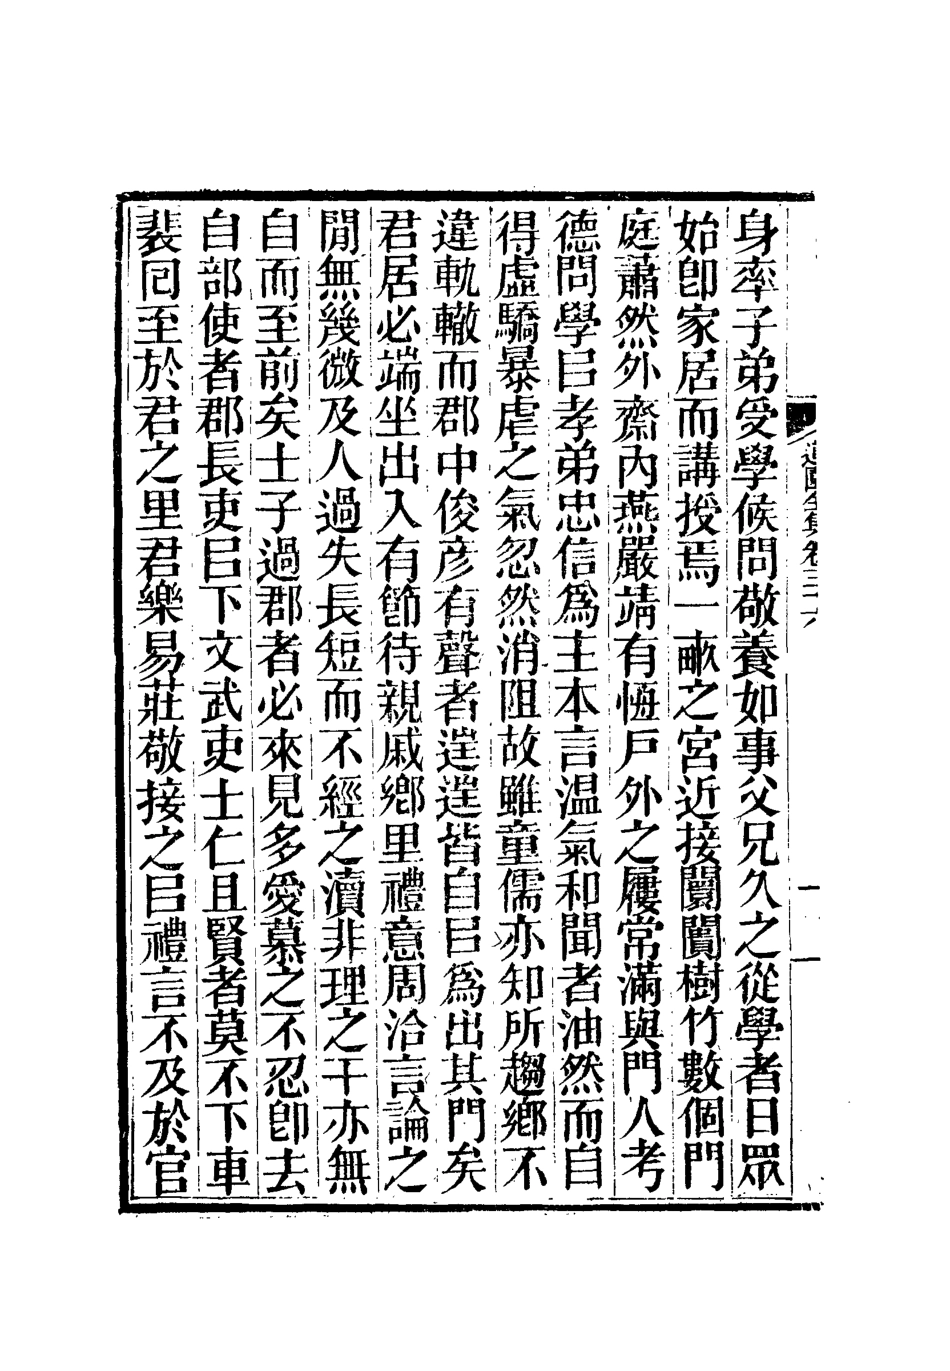 身率子弟受學候問敬養如事父兄久之從學者日眾
始卽家居而講授焉一畝之宮近接闤闠樹竹數個門
庭蕭然外齋內燕嚴靖有恆戶外之屨常滿與門人考
德問學㠯孝弟忠信爲主本言温氣和聞者油然而自
得虛驕暴虐之氣忽然消阻故雖童儒亦知所趨鄉不
違軌轍而郡中俊彦有聲者𨓏𨓏皆自㠯爲出其門矣
君居必端坐出入有節待親戚鄉里禮意周洽言論之
閒無幾微及人過失長短而不經之瀆非理之干亦無
自而至前矣士子過郡者必來見多愛慕之不忍卽去
自部使者郡長吏㠯下文武吏士仁且賢者莫不下車
裴囘至於君之里君樂易莊敬接之㠯禮言不及於官
道園全集卷三十八